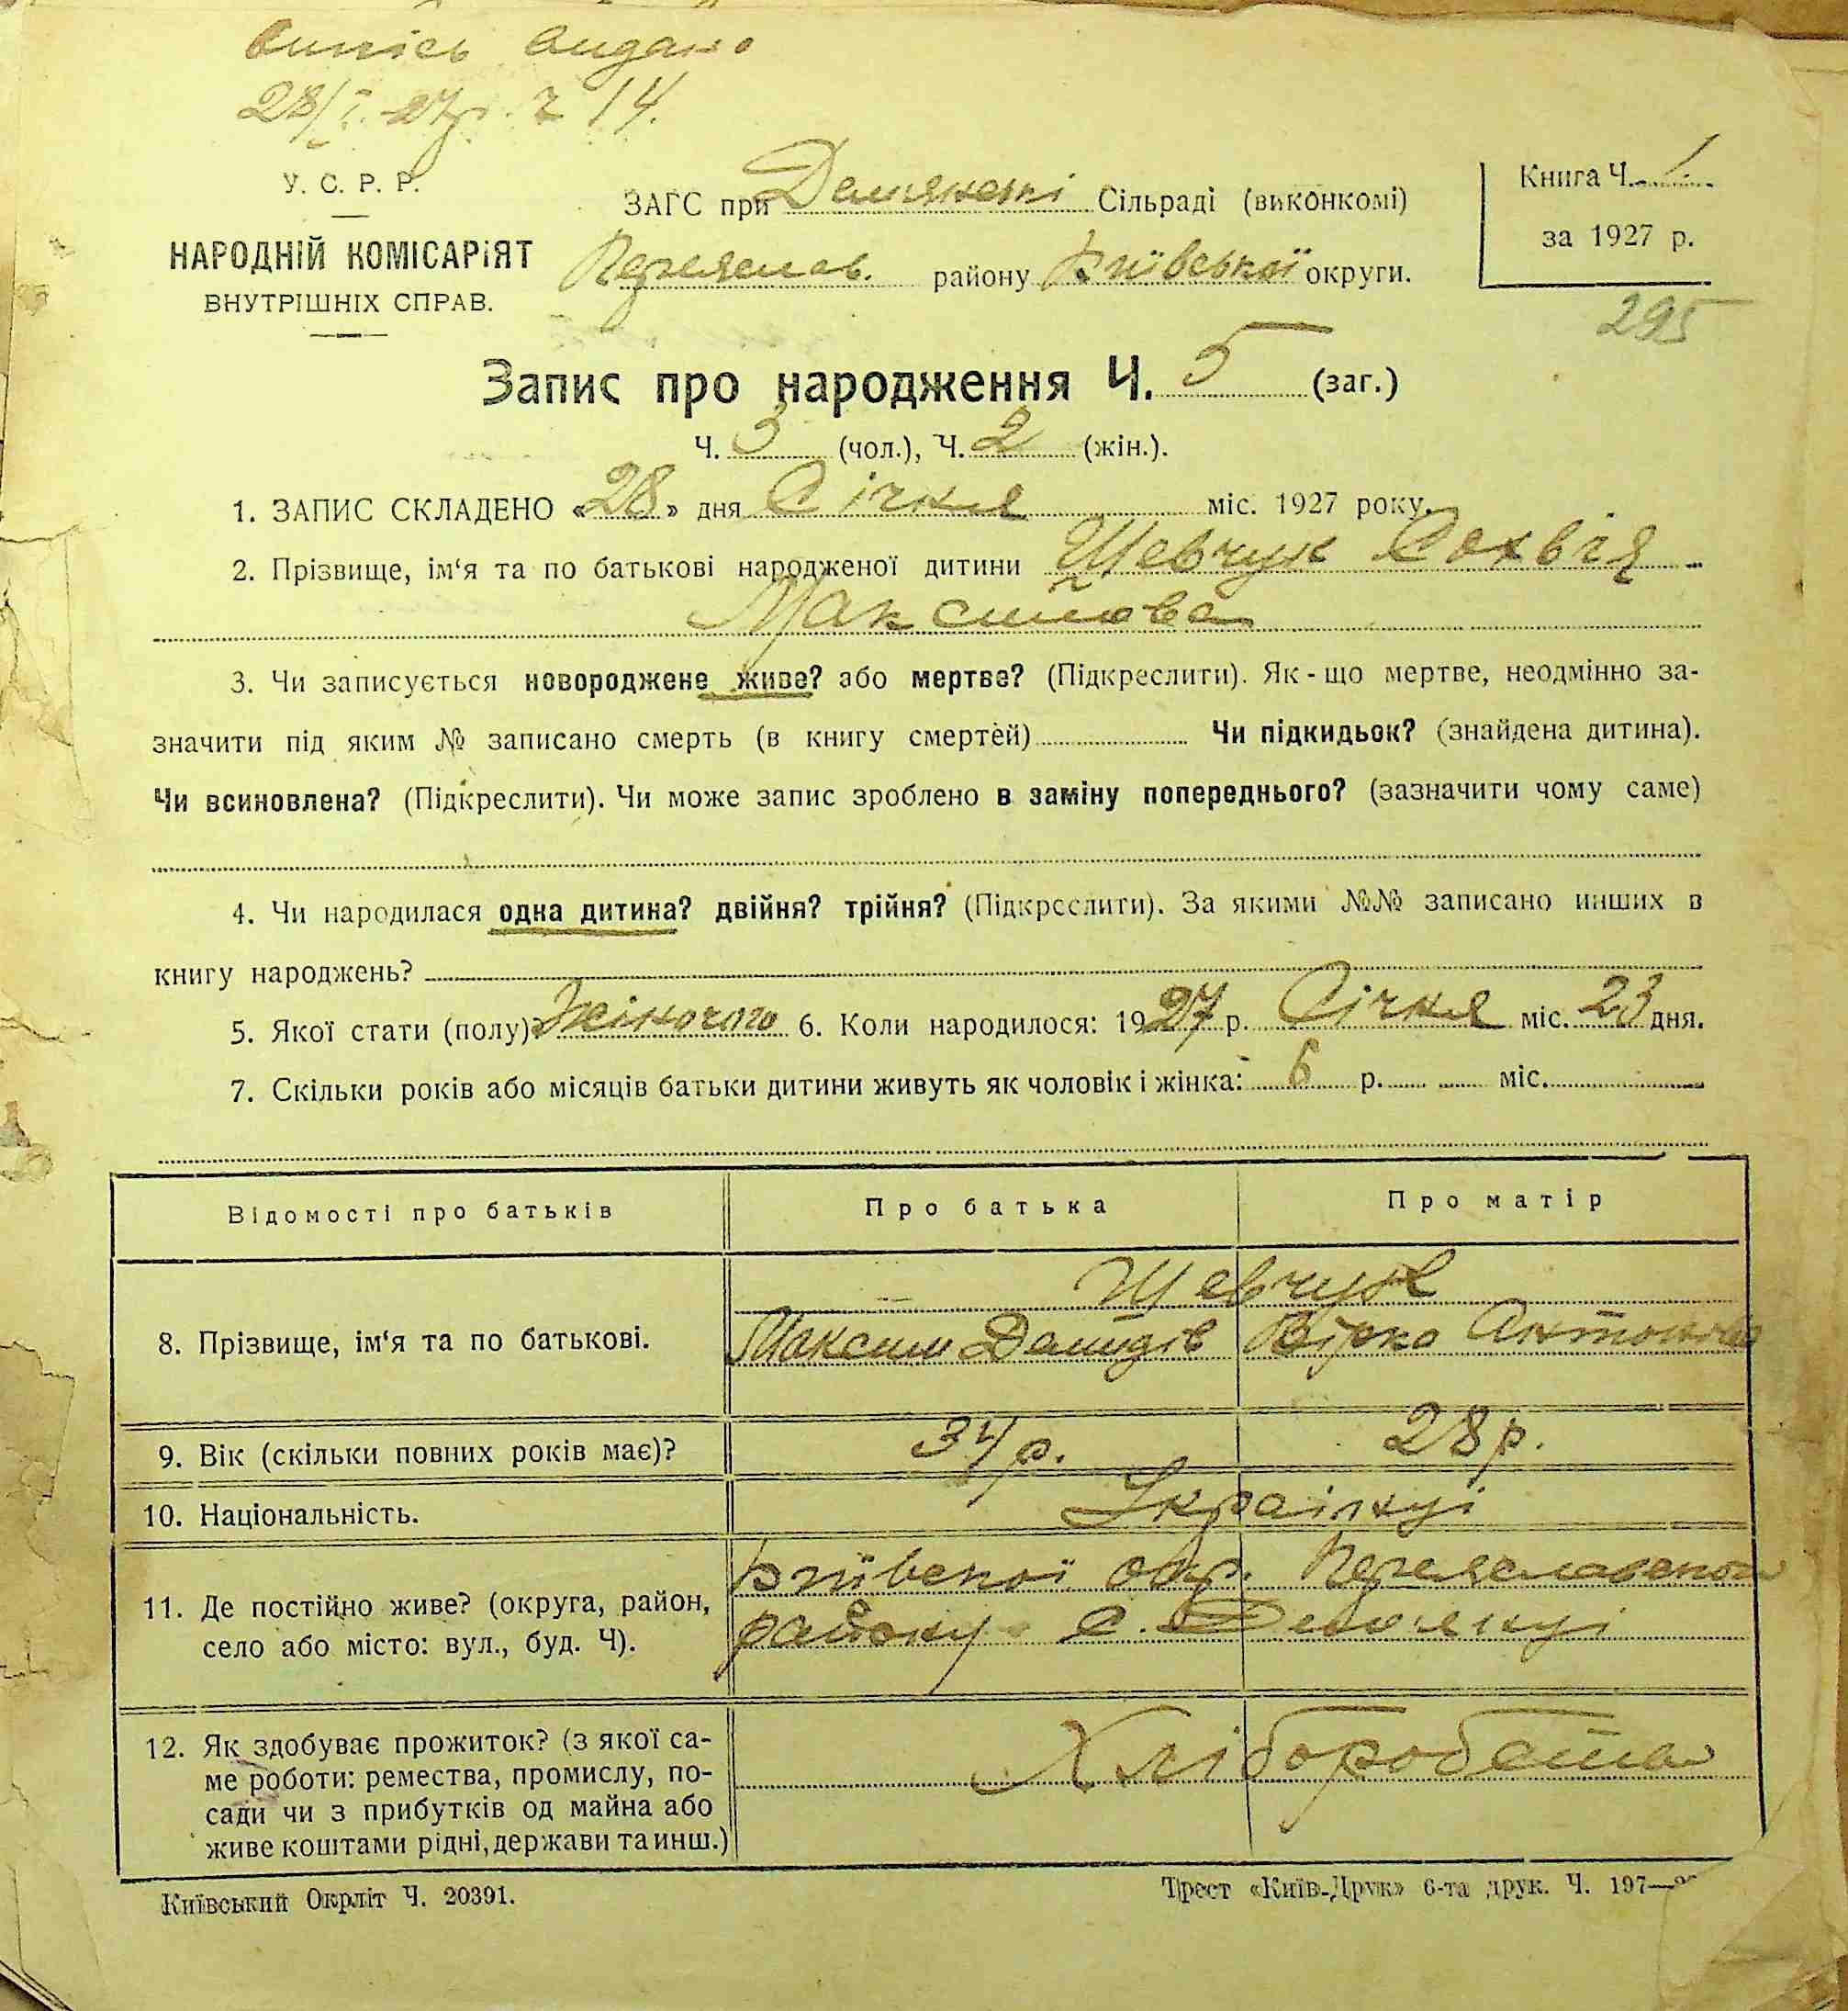 Випісь видано
28/I. 27р. Ч 14.
У. С. Р. Р.
НАРОДНІЙ КОМІСАРІЯТ
ВНУТРІШНІХ СПРАВ.
ЗАГС при Демянскі Сільраді (виконкомі)
Переяслав. району Київської округи.
Книга Ч. 1.
за 1927 р.
295
Запис про народження Ч. 5 (заг.)
Ч. 3 (чол.), Ч. 2 (жін.).
1. ЗАПИС СКЛАДЕНО «28» дня Січня міс. 1927 року.
2. Прізвище, ім‘я та по батькові народженої дитини Шевчук Сохвія
Максимова
3. Чи записується новороджене живе? або мертве? (Підкреслити). Як-що мертве, неодмінно за-
значити під яким № записано смерть (в книгу смертей) Чи підкидьок? (знайдена дитина).
Чи всиновлена? (Підкреслити). Чи може запис зроблено в заміну попереднього? (зазначити чому саме)
4. Чи народилася одна дитина? двійня? трійня? (Підкреслити). За якими №№ записано инших в
книгу народжень?
5. Якої стати (полу)? Жіночого 6. Коли народилося: 1927 р. Січня міс. 23 дня.
7. Скільки років або місяців батьки дитини живуть як чоловік і жінка: 6 р. міс.
Відомості про батьків Про батька Про матір
8. Прізвище, ім‘я та по батькові.
Шевчук
Максим Демидів Вірка Антонова
9. Вік (скільки повних років має)? 34 р. 28 р.
10. Національність. Українці
11. Де постійно живе? (округа, район,
село або місто: вул., буд. Ч).
Київської окр. Переяславського
району с. Дем'янці
12. Як здобуває прожиток? (з якої са-
ме роботи: ремества, промислу, по-
сади чи з прибутків од майна або
живе коштами рідні, держави та инш.)
Хліборобств
Київський Окрліт Ч. 20391.
Трест «Київ-Друк» 6-та друк. Ч. 197—